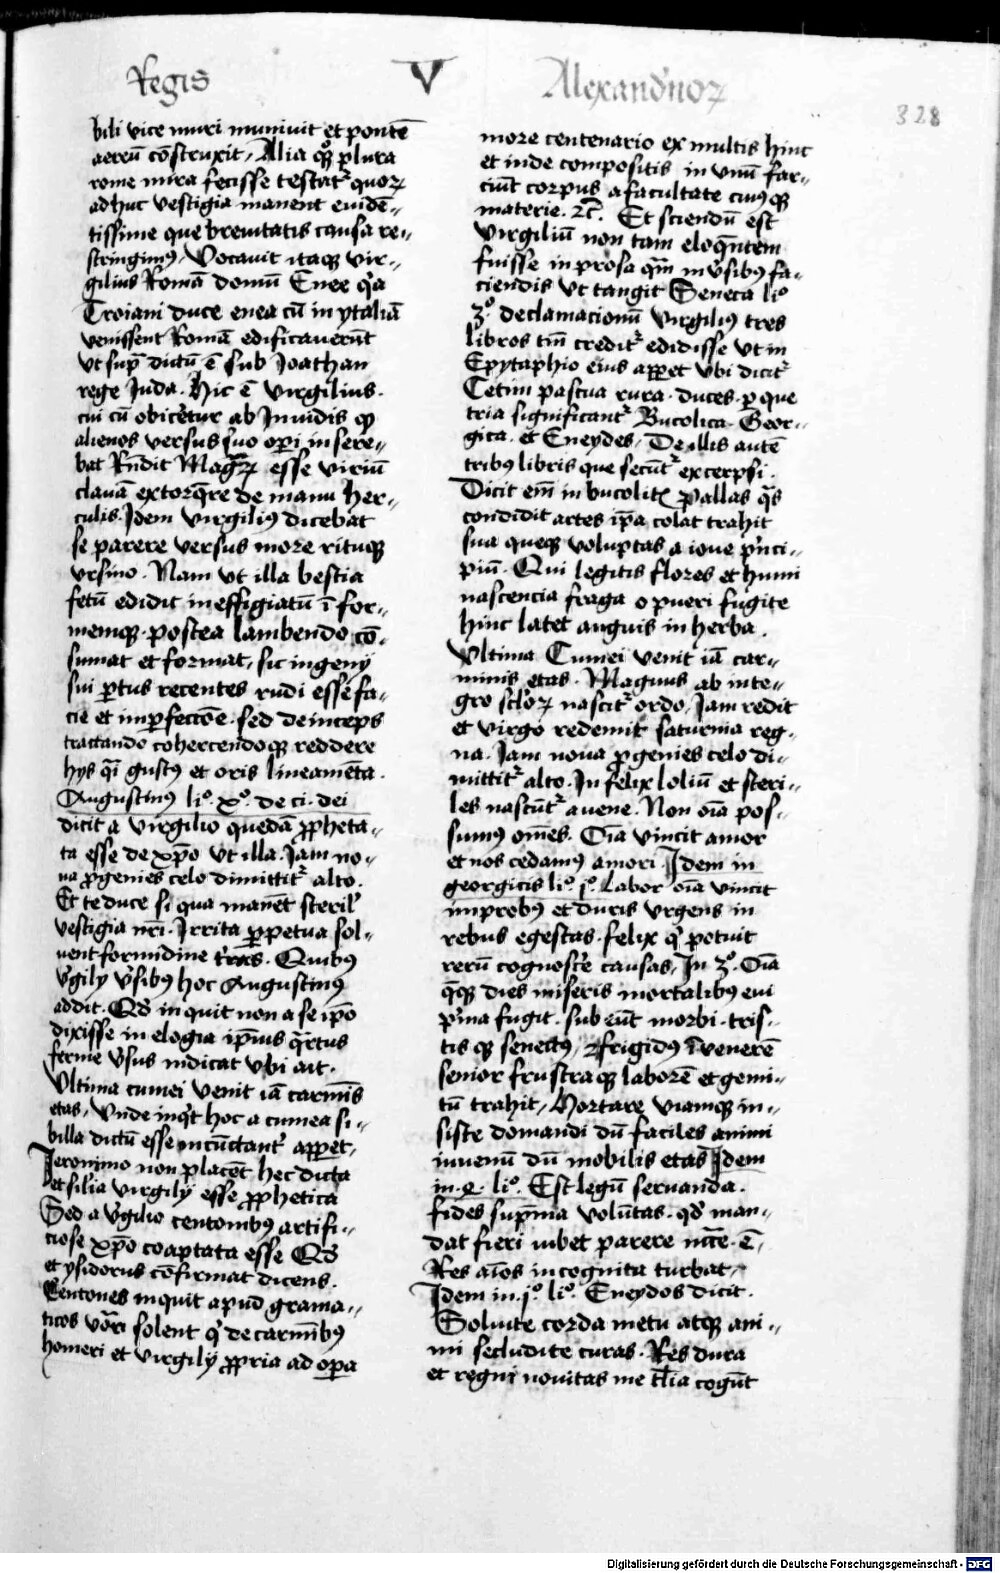 Regis V Alexandrinoꝝ
328
bili vice muri muniuit et pontē
aereū cōstruxit. Alia qꝫ plura
rome mira fecisse testatᷣ quoꝝ
adhuc vestigia manent euidē-
tissime que breuitatis causa re-
stringimꝯ. Vocauit itaqꝫ vir-
gilius Romā domū Enee qꝛ
Troiani duce enea cū in ytaliā
venissent Romā edificauerūt
vt supᷓ dictū ē sub Joathan
rege Juda. hic ē Virgilius.
cui cū obicetur ab Inuidis qp
alienos versus suo opi insere-
bat Rn̄dit Mag esse viriū
clauā extorqr̄e de manu her-
culis. Jdem virgiliꝯ dicebat
se parere versus more rituqꝫ
vrsino. Nam vt illa bestia
fetū edidit ineffigiatū ī for-
memqꝫ. postea lambendo cō-
sumat et format, sic ingeny
sui ꝑtus recentes rudi esse fa-
cie et imꝑfectōe. sed deinceps
tractando cohercendoqꝫ reddere
hys qᷓi gustꝯ et oris lineamēta.
Augustinꝯ liº. xº. de ci. dei
dicit a virgilio quedā ꝓphetā-
ta esse de xpō vt illa. Jam no-
ua ꝓgenies celo dimittitᷣ alto.
Et te duce si qua manēt sceril
vestigia nr̄i. Jrrita ꝑpetua sol-
uent formidine tr̄as. Quibꝯ
v̓gily v̓sibꝯ hoc Augustinꝯ
addit. Qd̓ inquit non a se ip̄o
dixisse in elogia ip̄ius qᷓrtus
ferme v̓sus indicat vbi ait.
Vltima cumei venit iā carmīs
etas. Vnde inqᷓt hoc a cumea si-
billa dictū esse incūctantᷣ apꝑet.
Jeronimo non placēt hec dicta
et silia virgilij esse ꝓphetica
Sed a v̓gilio centonibꝯ artifi-
ciose xpō coaptata esse Qd̓
et ysidorus cōfirmat dicens.
Centones inquit apud grama-
ticos vōri solent qͥ de carmībꝯ
homeri et virgilij ꝓpria ad oꝑa
more centenario ex multis hinc
et inde compositis in vnū far-
ciūt corpus a facultate cuiꝯqꝫ
materie. ⁊c̄. Et sciendū est
Virgiliū non tam eloqn̄tem
fuisse in prosa qᷓm in v̓sibꝯ fa-
ciendis vt tangit Seneca liº
3º declamacionū Virgiliꝯ tres
libros tm̄ creditᷣ edidisse vt in
Epytaphio eius apꝑet vbi dicitᷣ
Cetini pascua rura. duces. ꝑ que
tria significantᷣ Bucolica. Geor-
gica. et Eneydes. De illis autē
tribꝯ libris que secūtᷣ excerpsi.
Dicit em̄ in bucolit Pallas qᷓs
condidit artes ip̄a colat trahit
sua queqꝫ voluptas a ioue pͥnci-
piū. Qui legitis flores et humi
nascencia fraga o pueri fugite
hinc latet anguis in herba.
Vltima Cumei venit iā car-
minis etas. Magnus ab inte-
gro sclōꝝ nascitᷣ ordo. Jam redit
et virgo redemit saturnia reg-
na. Jam noua ꝓgenies celo di-
mittitᷣ alto. Jn felix loliū et steri-
les nascūtᷣ auene. Non oīa pos-
sumꝯ om̄es. Oīa vincit amor
et nos cedamꝯ amori. Jdem in
georgicis liº. jº. Labor oīa vincit
improbꝯ et duris vrgens in
rebus egestas. felix qͥ potuit
rerū cognosce causas. Jn 3º. Oīa
qᷓqꝫ dies miseris mortalibꝯ eui
pͥma fugit. sub eūt morbi. tris-
tis qꝫ senectꝯ, ⁊ frigidꝯ ī venerē
senior frustraqꝫ laborē et gemi-
tū trahit. Hortare viamqꝫ in-
siste domandi dū faciles animi
iuuenū dū mobilis etas Jdem
in. 4. liº. Est legū seruanda.
fides supᷓma volūtas. qd̓ man-
dat fieri iubet parere nēce. ē.
Res aīos incognita turbat.
Jdem in. jº. liº. Eneydos dicit.
Soluite corda metu atqꝫ ani-
mi secludite curas. Res dura
et regni nouitas me talia cogūt
Digitalisierung gefördert durch die Deutsche Forschungsgemeinschaft - DFG